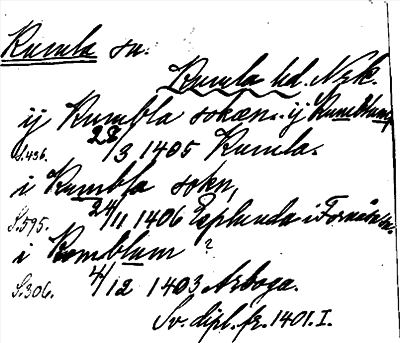 Kumla sn.
Kumla hd. Nrk.
ij Kumbla sokæn. ij Kumblum
S. 436. 28/3 1405 Kumla.
i Kumbla sokn,
S. 595. 24/11 1406 Esplunda i
i Komblum ?
S. 306. 4/12 1403 Arboga.
Sv. dipl. fr. 1401. I.